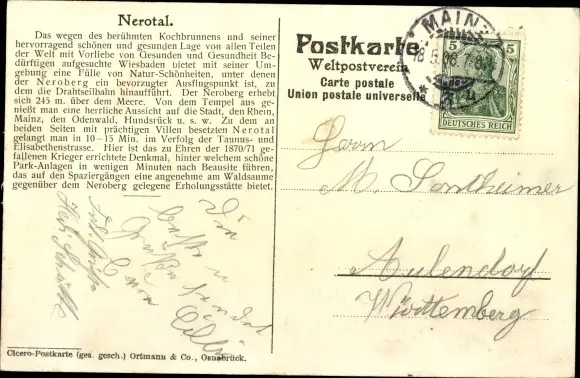 Nerotal.
Das wegen des berühmten Kochbrunnens und seiner
hervorragend schönen und gesunden Lage von allen Teilen
der Welt mit Vorliebe von Gesunden und Gesundheit Be-
dürftigen aufgesuchte Wiesbaden bietet mit seiner Um-
gebung eine Fülle von Natur-Schönheiten, unter denen
der Neroberg ein bevorzugter Ausflugspunkt ist, zu
dem die Drahtseilbahn hinaufführt. Der Neroberg erhebt
sich 245 m. über dem Meere. Von dem Tempel aus ge-
nießt man eine herrliche Aussicht auf die Stadt, den Rhein,
Mainz, den Odenwald, Hundsrück u. s. w. Zu dem an
beiden Seiten mit prächtigen Villen besetzten Nerotal
gelangt man in 10–15 Min. im Verfolg der Taunus- und
Elisabethenstrasse. Hier ist das zu Ehren der 1870/71 ge-
fallenen Krieger errichtete Denkmal, hinter welchem schöne
Park-Anlagen in wenigen Minuten nach Beausite führen,
das auf den Spaziergängen eine angenehme am Waldsaume
gegenüber dem Neroberg gelegene Erholungsstätte bietet.
Die
beste
Grüße
Cicero-Postkarte (ges. gesch.) Ortmanu & Co., Osnabrück.
Postkarte
Weltpostverein
Carte postale
Union postale universelle
MAINZ
5 5
DEUTSCHES REICH
Herrn
M. Sontheimer
Aulendorf
Württemberg